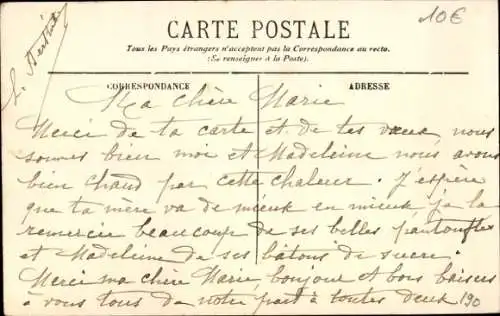 CARTE POSTALE
10€
Tous les Pays étrangers n'acceptent pas la Correspondance au recto.
(Se renseigner à la Poste).
CORRESPONDANCE
ADRESSE
Ma chère Marie
Merci de ta carte et de tes vœux nous
sommes bien moi et Madeleine nous avons
bien chaud par cette chaleur. J'espère
que ta mère va de mieux en mieux, je la
remercie beaucoup de ses belles pantoufles
et Madeleine de ses bâtons de sucre.
Merci ma chère Marie, bonjour et bons baisers
à vous tous de notre part à toutes deux
190